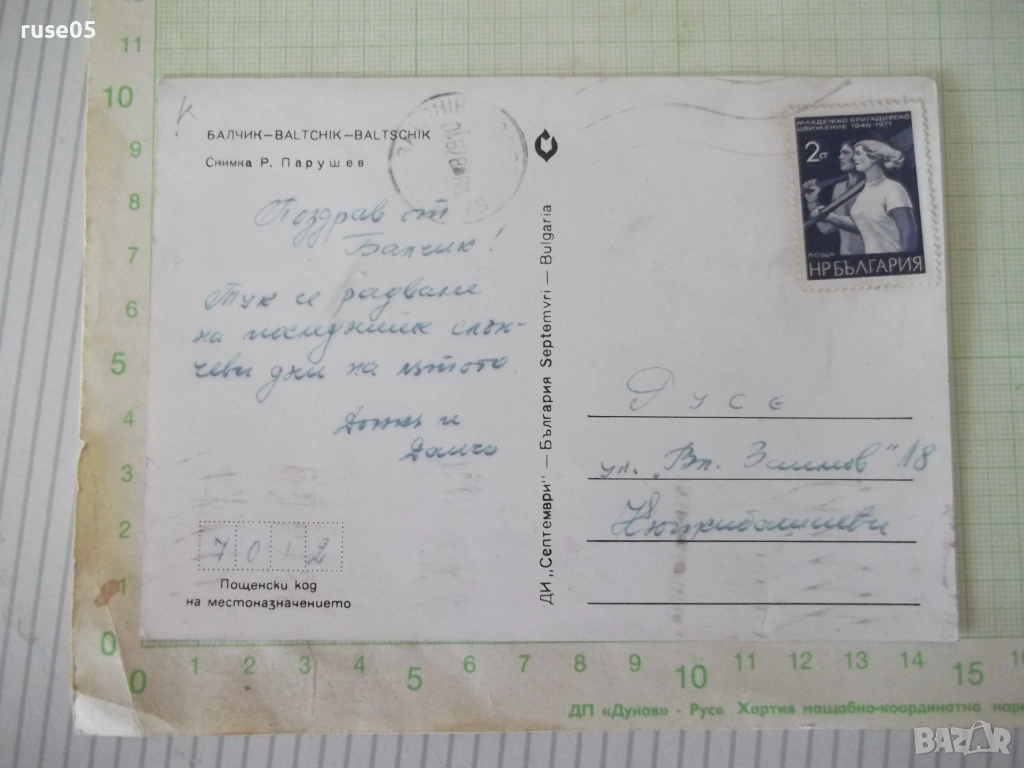 ruse05
БАЛЧИК–BALTCHIK–BALTSCHIK
Снимка Р. Парушев
Поздрав от
Балчик!
Тук се радваме
на последните слън-
чеви дни на лятото.
и
Данчо
7012
Пощенски код
на местоназначението
ДИ „Септември" – България Septemvri – Bulgaria
МЛАДЕЖКО БРИГАДИРСКО
ДВИЖЕНИЕ 1946-1971
2 СТ
ПОЩА
НР БЪЛГАРИЯ
Русе
ул. „Вл. Заимов" 18
11
10
9
8
7
6
5
4
3
2
1
0
0 1 2 3 4 5 6 7 8 9 10 11 12 13 14 15
ДП «Дунав» - Русе Хартия мащабно-координатна
BAZAR